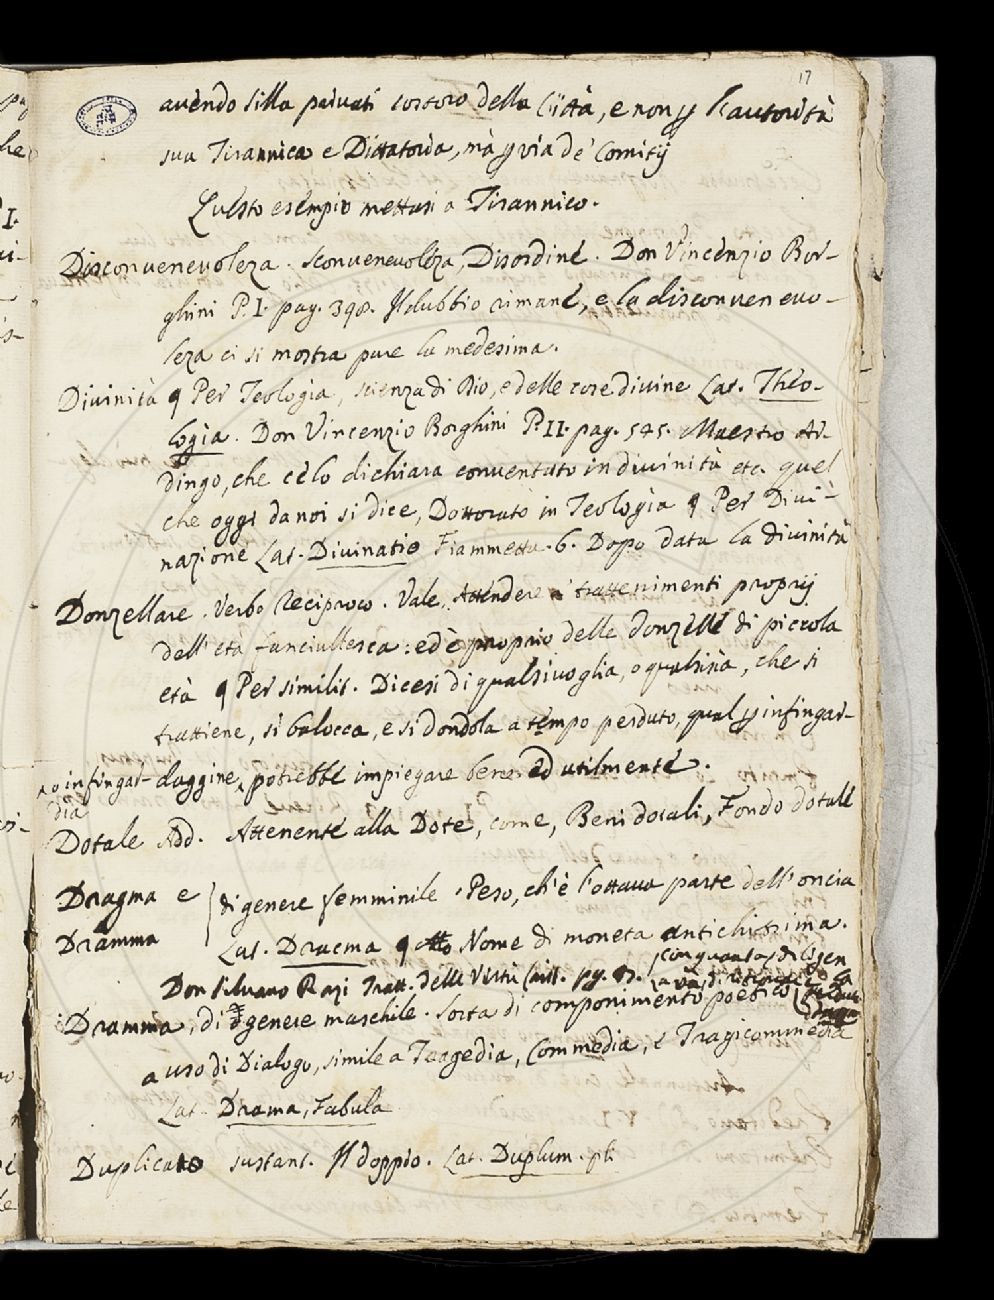 17
avendo Silla privati costoro della Città, e non p l'autorità
sua Tirannica e Dittatoria, mà p via de' Comitij
Questo esempio mettasi a Tirannico.
Disconvenevolezza. Sconvenevolezza, Disordine. Don Vincenzio Bor-
ghini P. I. pag. 398. Il dubbio rimane, e la disconvenevo-
leza ci si mostra pure la medesima.
Divinità ¶ Per Teologia, scienza di Dio, e delle cose divine Lat. Theo-
logia. Don Vincenzio Borghini P. II. pag. 545. Maestro Ar-
dingo, che cè lo dichiara conventato in divinità etc. quel
che oggi da noi si dice, Dottorato in Teologia ¶ Per Divi-
nazione Lat. Divinatio Fiammetta. 6. Dopo data la divinità
Donzellare. Verbo Reciproco. Vale, Attendere a' trattenimenti proprij
dell'età fanciullesca: ed è proprio delle donzelle di piccola
età ¶ Per similit. Dicesi di qualsivoglia, o qualsisia, che si
trattiene, si balocca, e si dondola a tempo perduto, qual p infingar-
daggine, potrebbe impiegare bene ed utilmente.
o infingar-
dia
Dotale Add. Attenente alla Dote, come, Beni dotali, Fondo dotale
Dragma e
Dramma
di genere femminile. Peso, ch'è l'ottava parte dell'oncia
Lat. Dracma ¶ Nome di moneta antichissima.
Don Silvano Razi Tratt. delle Virtù
cinquanta
Dramma, di genere maschile. Sorta di componimento poetico
a uso di Dialogo, simile a Tragedia, Commedia, e Tragicommedia
Lat. Drama, Fabula
Duplicato sustant. Il doppio. Lat. Duplum. pli